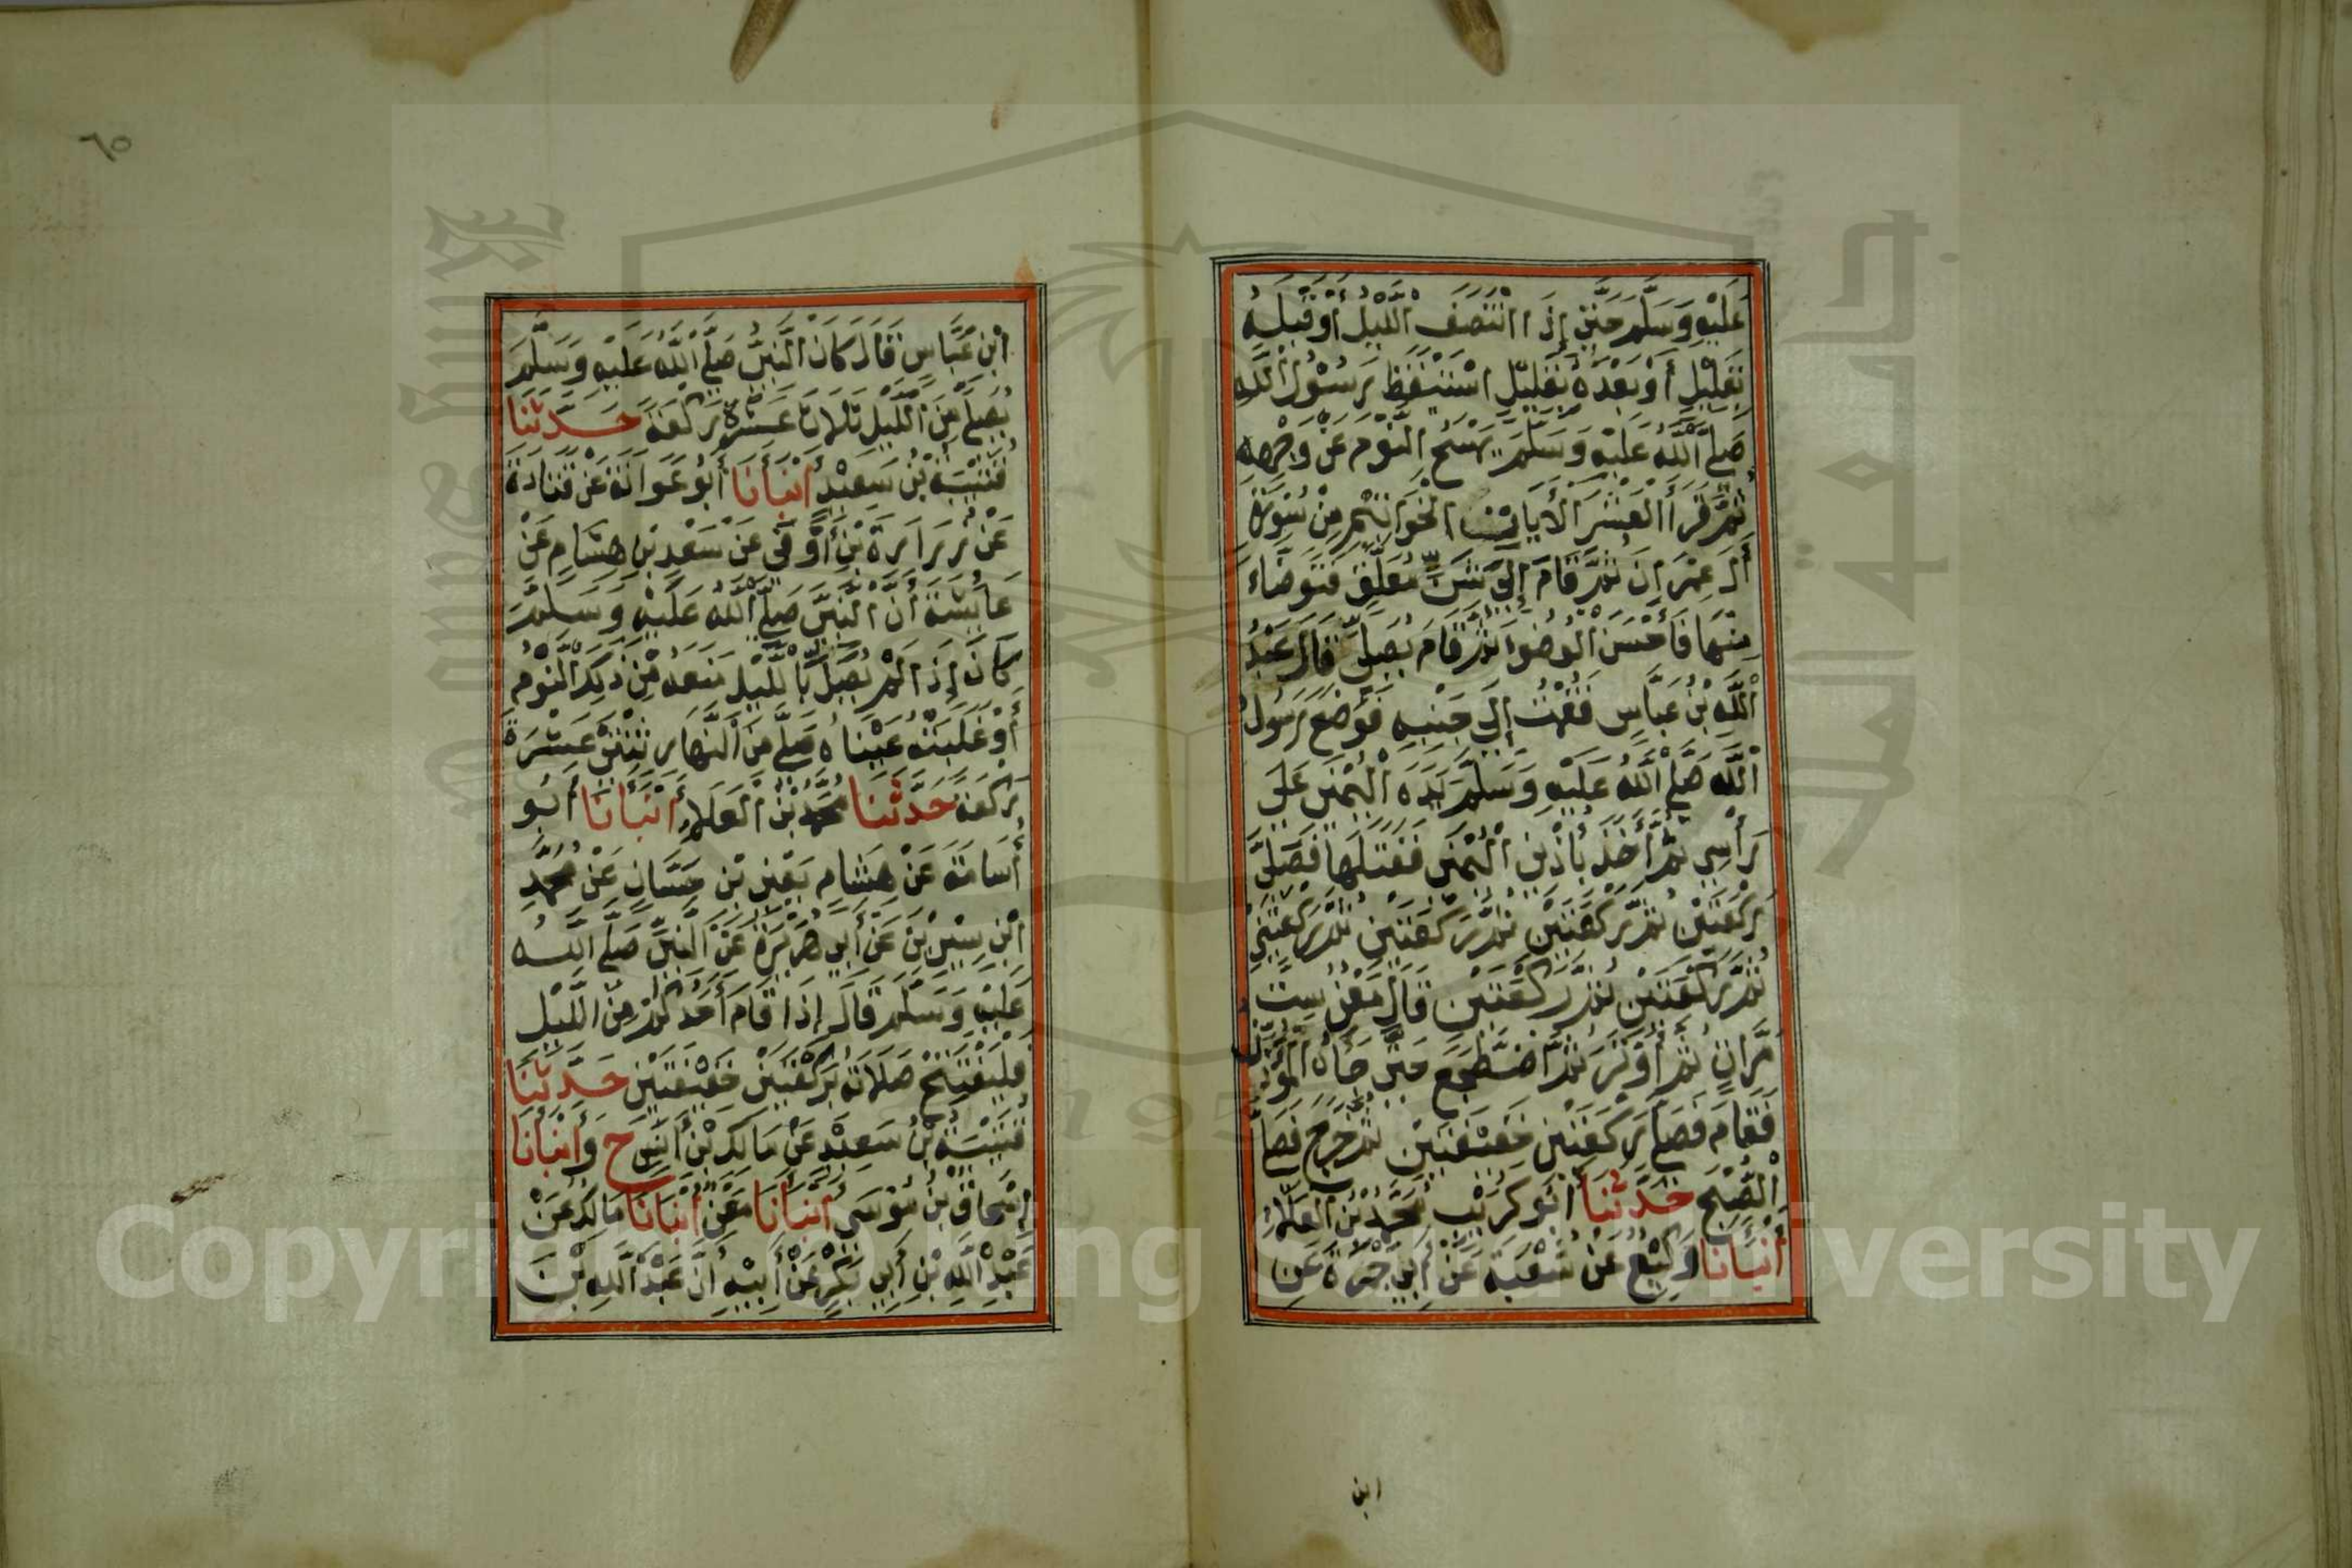 عَلَيْهِ وَسَلَّمَ حَتَّى إِذَا انْتَصَفَ اللَّيْلُ أَوْ قَبْلَهُ
بِقَلِيْلٍ أَوْ بَعْدَهُ بِقَلِيْلٍ اسْتَيْقَظَ رَسُوْلُ اللَّهِ
صَلَّى اللَّهُ عَلَيْهِ وَسَلَّمَ يَمْسَحُ النَّوْمَ عَنْ وَجْهِهِ
ثُمَّ قَرَأَ الْعَشْرَ الْأَيَاتِ الْخَوَاتِيْمَ مِنْ سُوْرَةِ
أَلِ عِمْرَانَ ثُمَّ قَامَ إِلَى شَنٍّ مُعَلَّقٍ فَتَوَضَّاءَ
مِنْهَا فَأَحْسَنَ الْوُضُوْءَ ثُمَّ قَامَ يُصَلِّي قَالَ عَبْدُ
اللَّهِ بْنُ عَبَّاسٍ فَقُمْتُ إِلَى جَنْبِهِ فَوَضَعَ رَسُوْلُ
اللَّهِ صَلَّى اللَّهُ عَلَيْهِ وَسَلَّمَ يَدَهُ الْيُمْنَى عَلَى
رَأْسِي ثُمَّ أَخَذَ بِأُذُنِي الْيُمْنَى فَفَتَلَهَا فَصَلَّى
رَكْعَتَيْنِ ثُمَّ رَكْعَتَيْنِ ثُمَّ رَكْعَتَيْنِ ثُمَّ رَكْعَتَيْنِ
ثُمَّ رَكْعَتَيْنِ ثُمَّ رَكْعَتَيْنِ قَالَ مَعْنٌ سِتَّ
مَرَّاتٍ ثُمَّ أَوْتَرَ ثُمَّ اضْطَجَعَ حَتَّى جَاءَهُ الْمُؤَذِّنُ
فَقَامَ فَصَلَّى رَكْعَتَيْنِ خَفِيْفَتَيْنِ ثُمَّ خَرَجَ فَصَلَّى
الصُّبْحَ حَدَّثَنَا أَبُو كُرَيْبٍ مُحَمَّدُ بْنُ الْعَلَاءِ
أَنْبَأَنَا وَكِيْعٌ عَنْ شُعْبَةَ عَنْ أَبِي جَمْرَةَ عَنِ
ابن
٦٥
ابْنِ عَبَّاسٍ قَالَ كَانَ النَّبِيُّ صَلَّى اللَّهُ عَلَيْهِ وَسَلَّمَ
يُصَلِّي مِنَ اللَّيْلِ ثَلَاثَ عَشْرَةَ رَكْعَةً حَدَّثَنَا
قُتَيْبَةُ بْنُ سَعِيْدٍ أَنْبَأَنَا أَبُو عَوَانَةَ عَنْ قَتَادَةَ
عَنْ زُرَارَةَ بْنِ أَوْفَى عَنْ سَعْدِ بْنِ هِشَامٍ عَنْ
عَائِشَةَ أَنَّ النَّبِيَّ صَلَّى اللَّهُ عَلَيْهِ وَسَلَّمَ
كَانَ إِذَا لَمْ يُصَلِّ بِاللَّيْلِ مَنَعَهُ مِنْ ذَلِكَ النَّوْمُ
أَوْ غَلَبَتْهُ عَيْنَاهُ صَلَّى مِنَ النَّهَارِ ثِنْتَيْ عَشْرَةَ
رَكْعَةً حَدَّثَنَا مُحَمَّدُ بْنُ الْعَلَاءِ أَنْبَأَنَا أَبُو
أُسَامَةَ عَنْ هِشَامٍ يَعْنِي بْنَ حَسَّانٍ عَنْ مُحَمَّدِ
ابْنِ سِيْرِيْنَ عَنْ أَبِي هُرَيْرَةَ عَنِ النَّبِيِّ صَلَّى اللَّهُ
عَلَيْهِ وَسَلَّمَ قَالَ إِذَا قَامَ أَحَدُكُمْ مِنَ اللَّيْلِ
فَلْيَفْتَتِحْ صَلَاتَهُ بِرَكْعَتَيْنِ خَفِيْفَتَيْنِ حَدَّثَنَا
قُتَيْبَةُ بْنُ سَعِيْدٍ عَنْ مَالِكِ بْنِ أَنَسٍ ح وَأَنْبَأَنَا
إِسْحَاقُ بْنُ مُوْسَى أَنْبَأَنَا مَعْنٌ أَنْبَأَنَا مَالِكٌ عَنْ
عَبْدِ اللَّهِ بْنِ أَبِي بَكْرٍ عَنْ أَبِيْهِ أَنَّ عَبْدَ اللَّهِ بْنَ